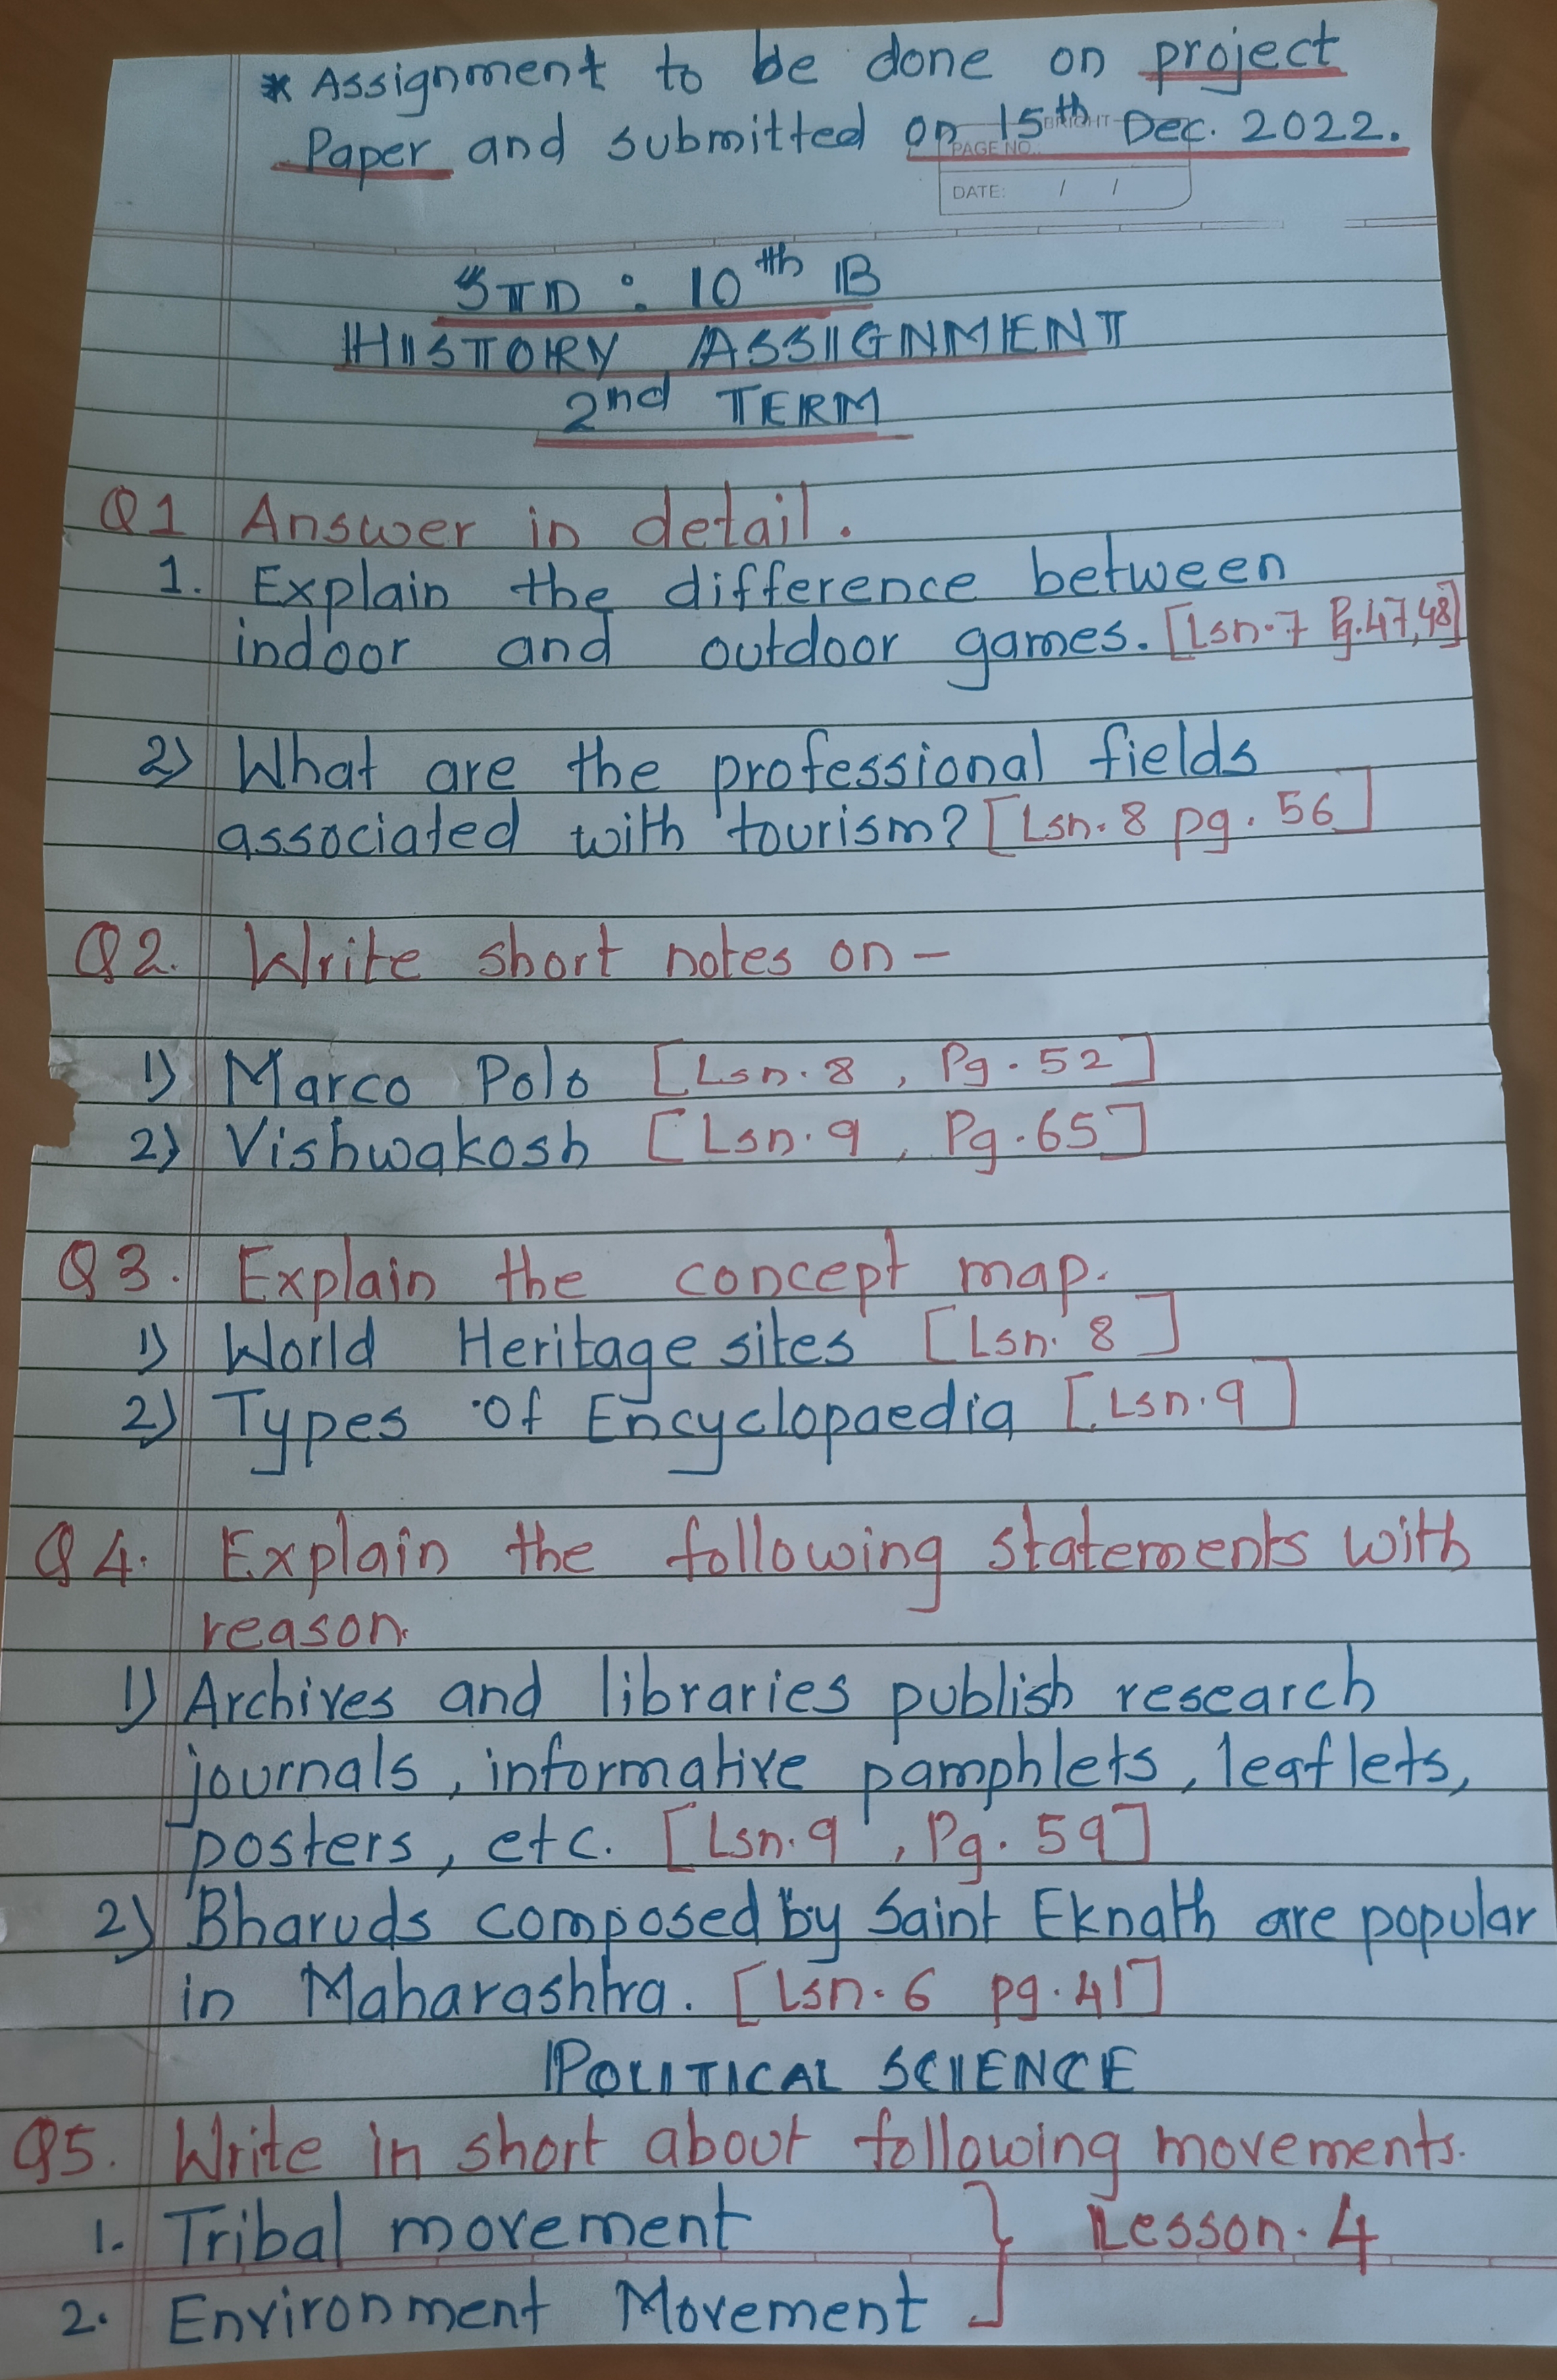 * Assignment to be done on project
Paper and submitted on 15th Dec. 2022.
BRIGHT
PAGE NO.
DATE: / /
STD : 10th B
HISTORY ASSIGNMENT
2nd TERM
Q1 Answer in detail.
1. Explain the difference between
indoor and outdoor games. [Lsn.7 Pg.47,48]
2) What are the professional fields
associated with tourism? [Lsn.8 pg.56]
Q2. Write short notes on –
1) Marco Polo [Lsn.8, Pg.52]
2) Vishwakosh [Lsn.9, Pg.65]
Q3. Explain the concept map.
1) World Heritage sites [Lsn.8]
2) Types of Encyclopaedia [Lsn.9]
Q4. Explain the following statements with
reason.
1) Archives and libraries publish research
journals, informative pamphlets, leaflets,
posters, etc. [Lsn.9, Pg.59]
2) Bharuds composed by Saint Eknath are popular
in Maharashtra. [Lsn.6 pg.41]
POLITICAL SCIENCE
Q5. Write in short about following movements.
1. Tribal movement } Lesson.4
2. Environment Movement